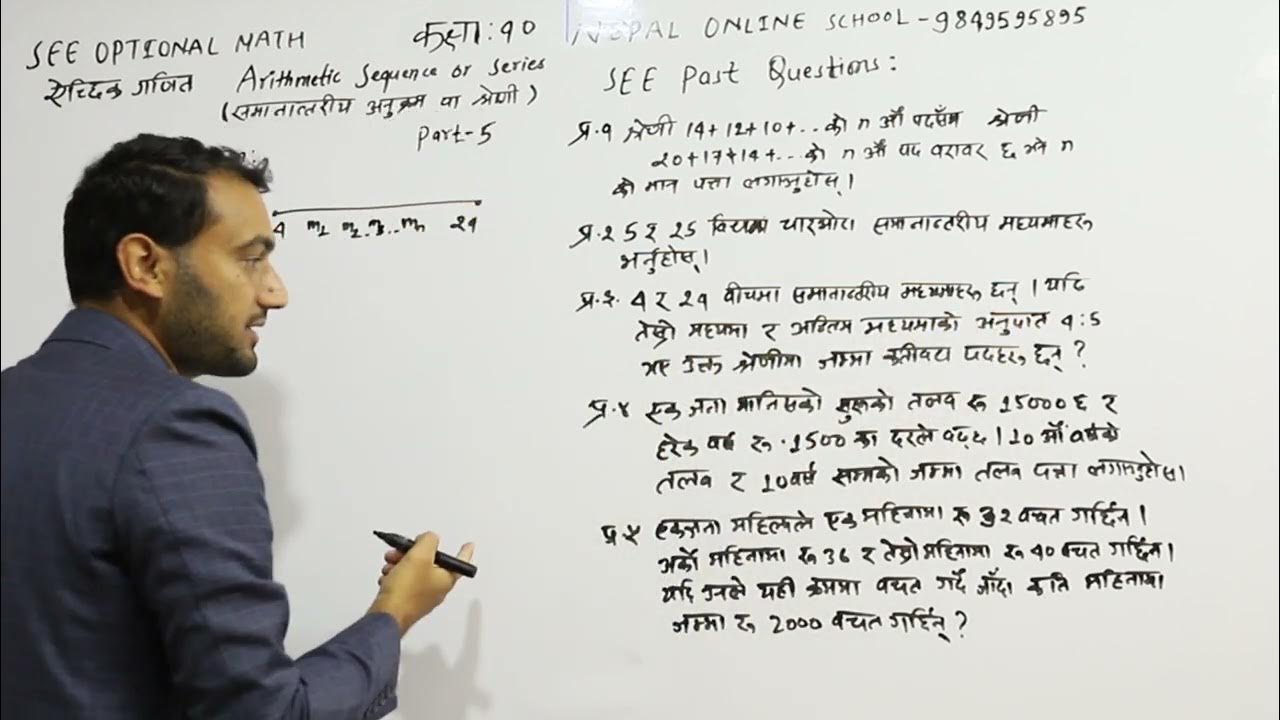 SEE OPTIONAL MATH कक्षा: १०
ऐच्छिक गणित Arithmetic Sequence or Series
(समानान्तरीय अनुक्रम वा श्रेणी)
Part-5
4 m1 m2 m3 .. mn 24
NEPAL ONLINE SCHOOL - 9849595895
SEE Past Questions:
प्र.१ श्रेणी 14+12+10+... को n औं पदसँग श्रेणी
20+17+14+... को n औं पद बराबर छ भने n
को मान पत्ता लगाउनुहोस् ।
प्र.२ 5 र 25 बिचमा चारओटा समानान्तरीय मध्यमाहरू
भर्नुहोस् ।
प्र.३. 4 र 24 बीचमा समानान्तरीय मध्यमाहरू छन् । यदि
तेस्रो मध्यमा र अन्तिम मध्यमाको अनुपात 4:5
भए उक्त श्रेणीमा जम्मा कतिवटा पदहरू छन् ?
प्र.४ एक जना मानिसको सुरूको तलब रू 15000 छ र
हरेक वर्ष रू. 1500 का दरले बढ्छ । 10 औं वर्षको
तलब र 10 वर्ष सम्मको जम्मा तलब पत्ता लगाउनुहोस् ।
प्र.५ एकजना महिलाले एक महिनामा रू 32 बचत गर्छिन् ।
अर्को महिनामा रू 36 र तेस्रो महिनामा रू 40 बचत गर्छिन् ।
यदि उनले यही क्रममा बचत गर्दै जाँदा कति महिनामा
जम्मा रू 2000 बचत गर्छिन् ?